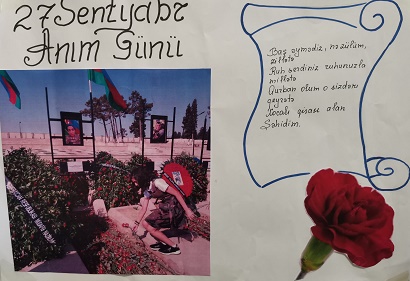 27 Sentyabr
Anım Günü
Baş əymədiz, nə zülüm,
zillətə
Ruh verdiniz ruhunuzla
millətə
Qurban olum o sizdəki
qeyrətə
Xocalı qisası alan
Şəhidim.